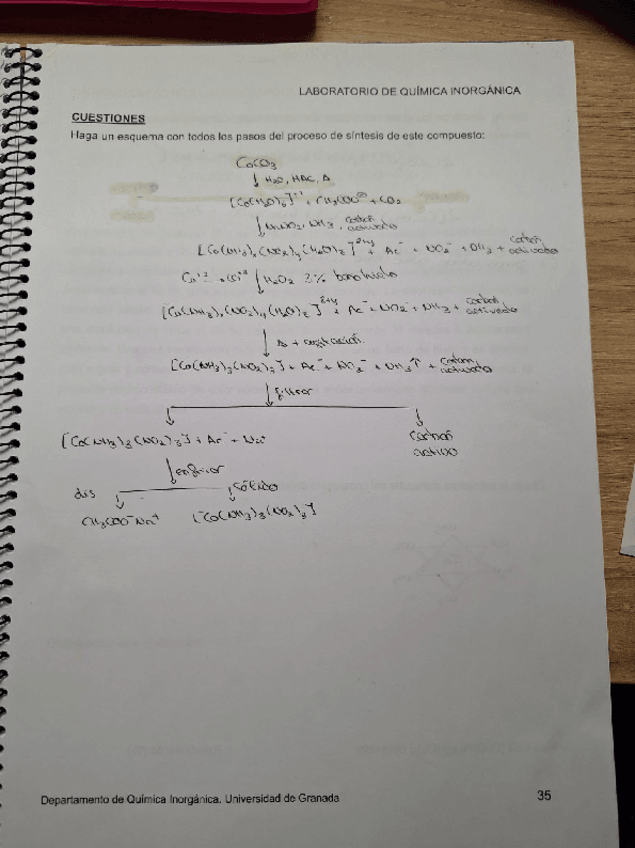 LABORATORIO DE QUÍMICA INORGÁNICA
CUESTIONES
Haga un esquema con todos los pasos del proceso de síntesis de este compuesto:
CoCO3
↓ H2O, HAC, Δ
[Co(H2O)6]+2 + CH3COO⊖ + CO2
↓ NaNO2, NH3, carbón activado
[Co(NH3)x(NO2)y(H2O)z]2+y + Ac- + NO2- + NH3 + carbón activado
↓ H2O2 % borboteo
[Co(NH3)x(NO2)y(H2O)z] + Ac- + NO2- + NH3 + carbón activado
↓ Δ + agitación
[Co(NH3)3(NO2)3] + Ac- + NO2- + NH3↑ + carbón activado
↓ filtrar
[Co(NH3)3(NO2)3] + Ac- + carbón activo
↓ enfriar
dis sólido
CH3COO-Na+ [Co(NH3)3(NO2)3]
Departamento de Química Inorgánica. Universidad de Granada 35